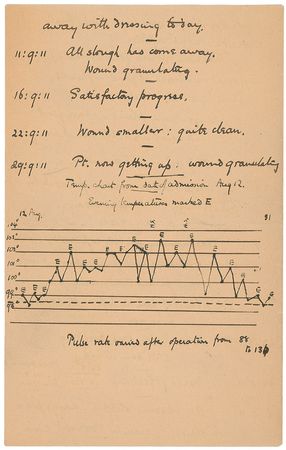 away with dressing to day.
11:9:11 All slough has come away.
Wound granulating.
16:9:11 Satisfactory progress.
22:9:11 Wound smaller: quite clean.
29:9:11 Pt. now getting up: wound granulating
Temp. chart from date of admission Aug 12.
Evening temperatures marked E
12 Aug. 31
104°
103°
102°
101°
100°
99°
98°
Pulse rate varied after operation from 88
to 136